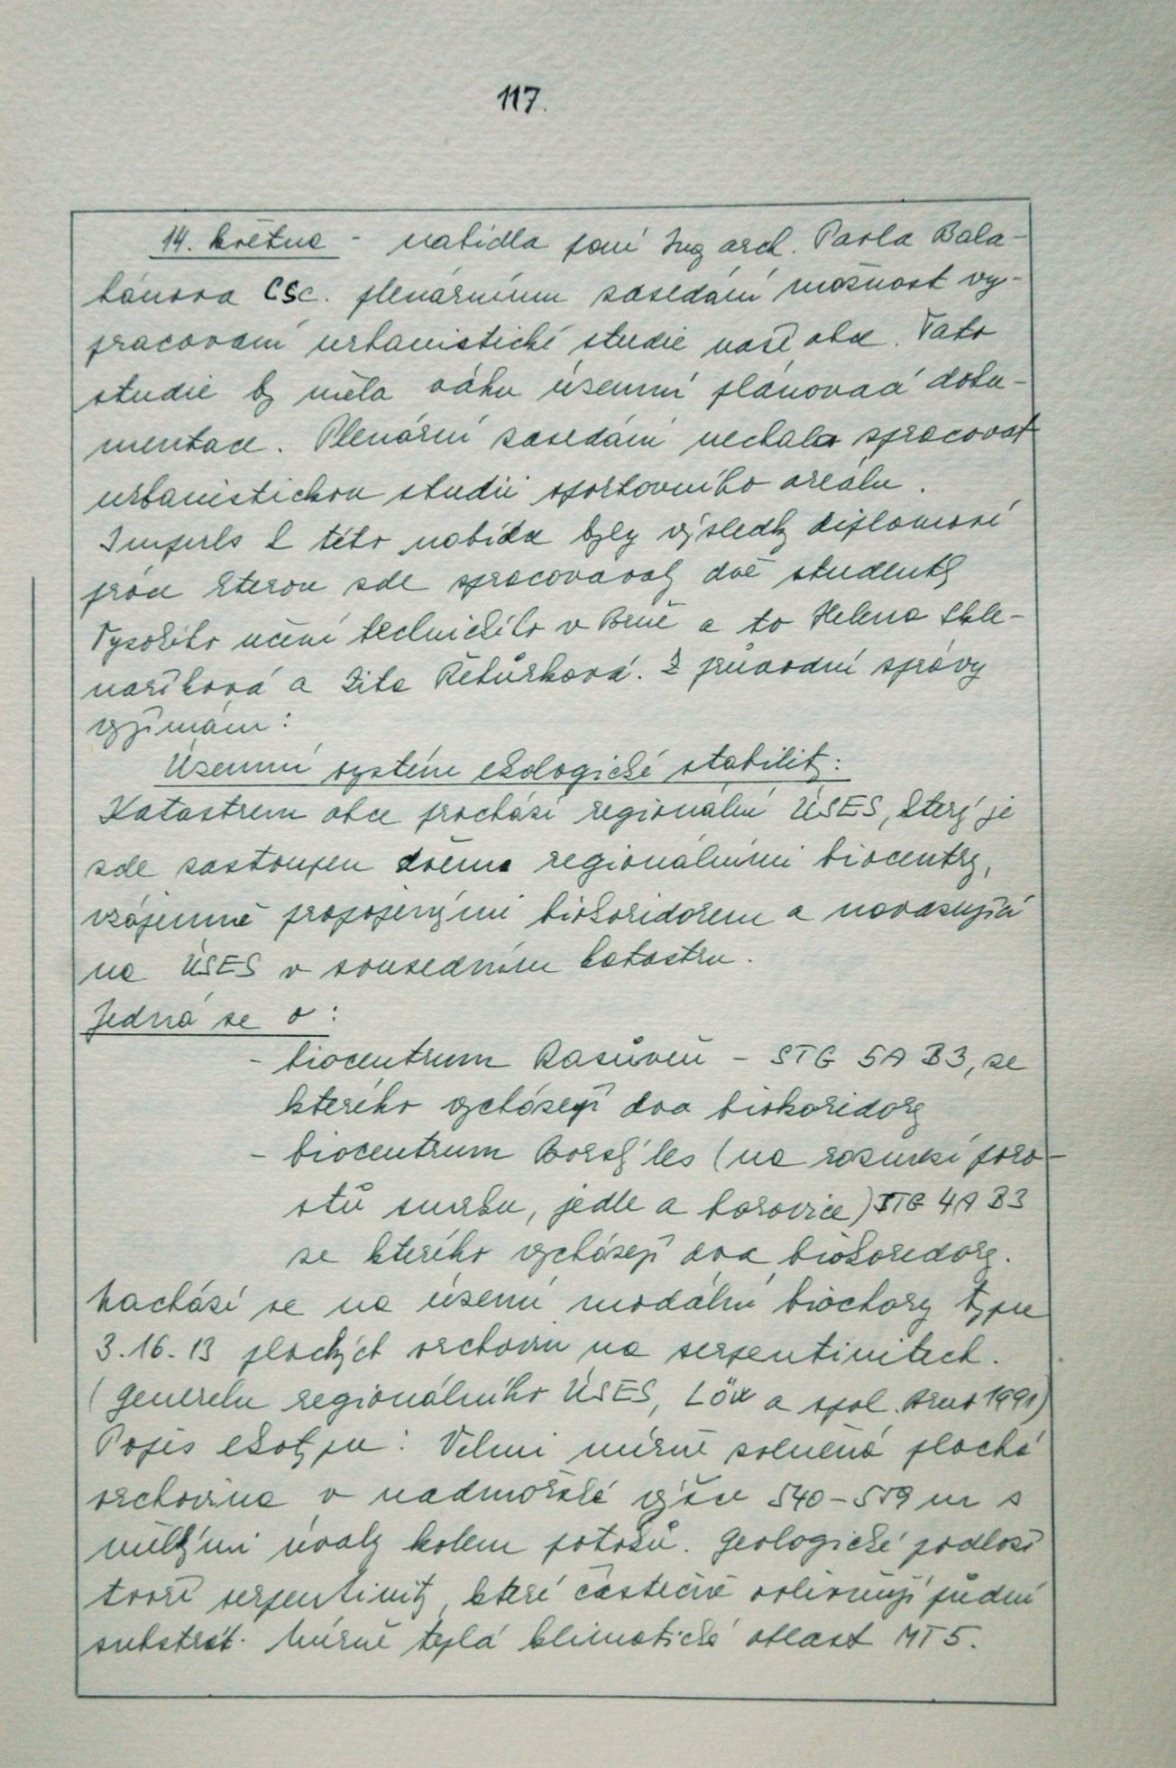 117.
14. května - nabídla paní Ing arch. Pavla Bala-
bánova CSc. plenárnímu zasedání možnost vy-
pracovaní urbanistické studie naší obce. Tato
studie by měla váhu územní plánovací doku-
mentace. Plenární zasedání nechalo zpracovat
urbanistickou studii sportovního areálu.
Impuls k této nabídce byly výsledky diplomové
práce kterou zde zpracovavaly dvě studentky
Vysokého učení technického v Brně a to Helena Skle-
naříková a Zita Řetůrková. Z průvodní zprávy
vyjímám:
Územní systém ekologické stability:
Katastrem obce prochází regionalní ÚSES, který je
zde zastoupen dvěma regionálními biocentry,
vzájemně propojenými biokoridorem a navazující
na ÚSES v sousedním katastru.
Jedná se o:
- biocentrum Rasůveň - STG 5A B3, ze
kterého vycházejí dva biokoridory
- biocentrum Borový les (na rozmezí poro-
stů smrku, jedle a borovice) STG 4A B3
ze kterého vycházejí dva biokoridory.
Nachází se na území modální biochory typu
3.16.13 plochých vrchovin na serpentinitech.
(Generelu regionálního ÚSES, Löw a spol. Brno 1991)
Popis ekotypu: Velmi mírně zvlněná plochá
vrchovina v nadmořské výšce 540-559 m s
mělkými úvaly kolem potoků. Geologické podloží
tvoří serpentinity, které částečně ovlivňují půdní
substrát. Mírně teplá klimatická oblast MT5.